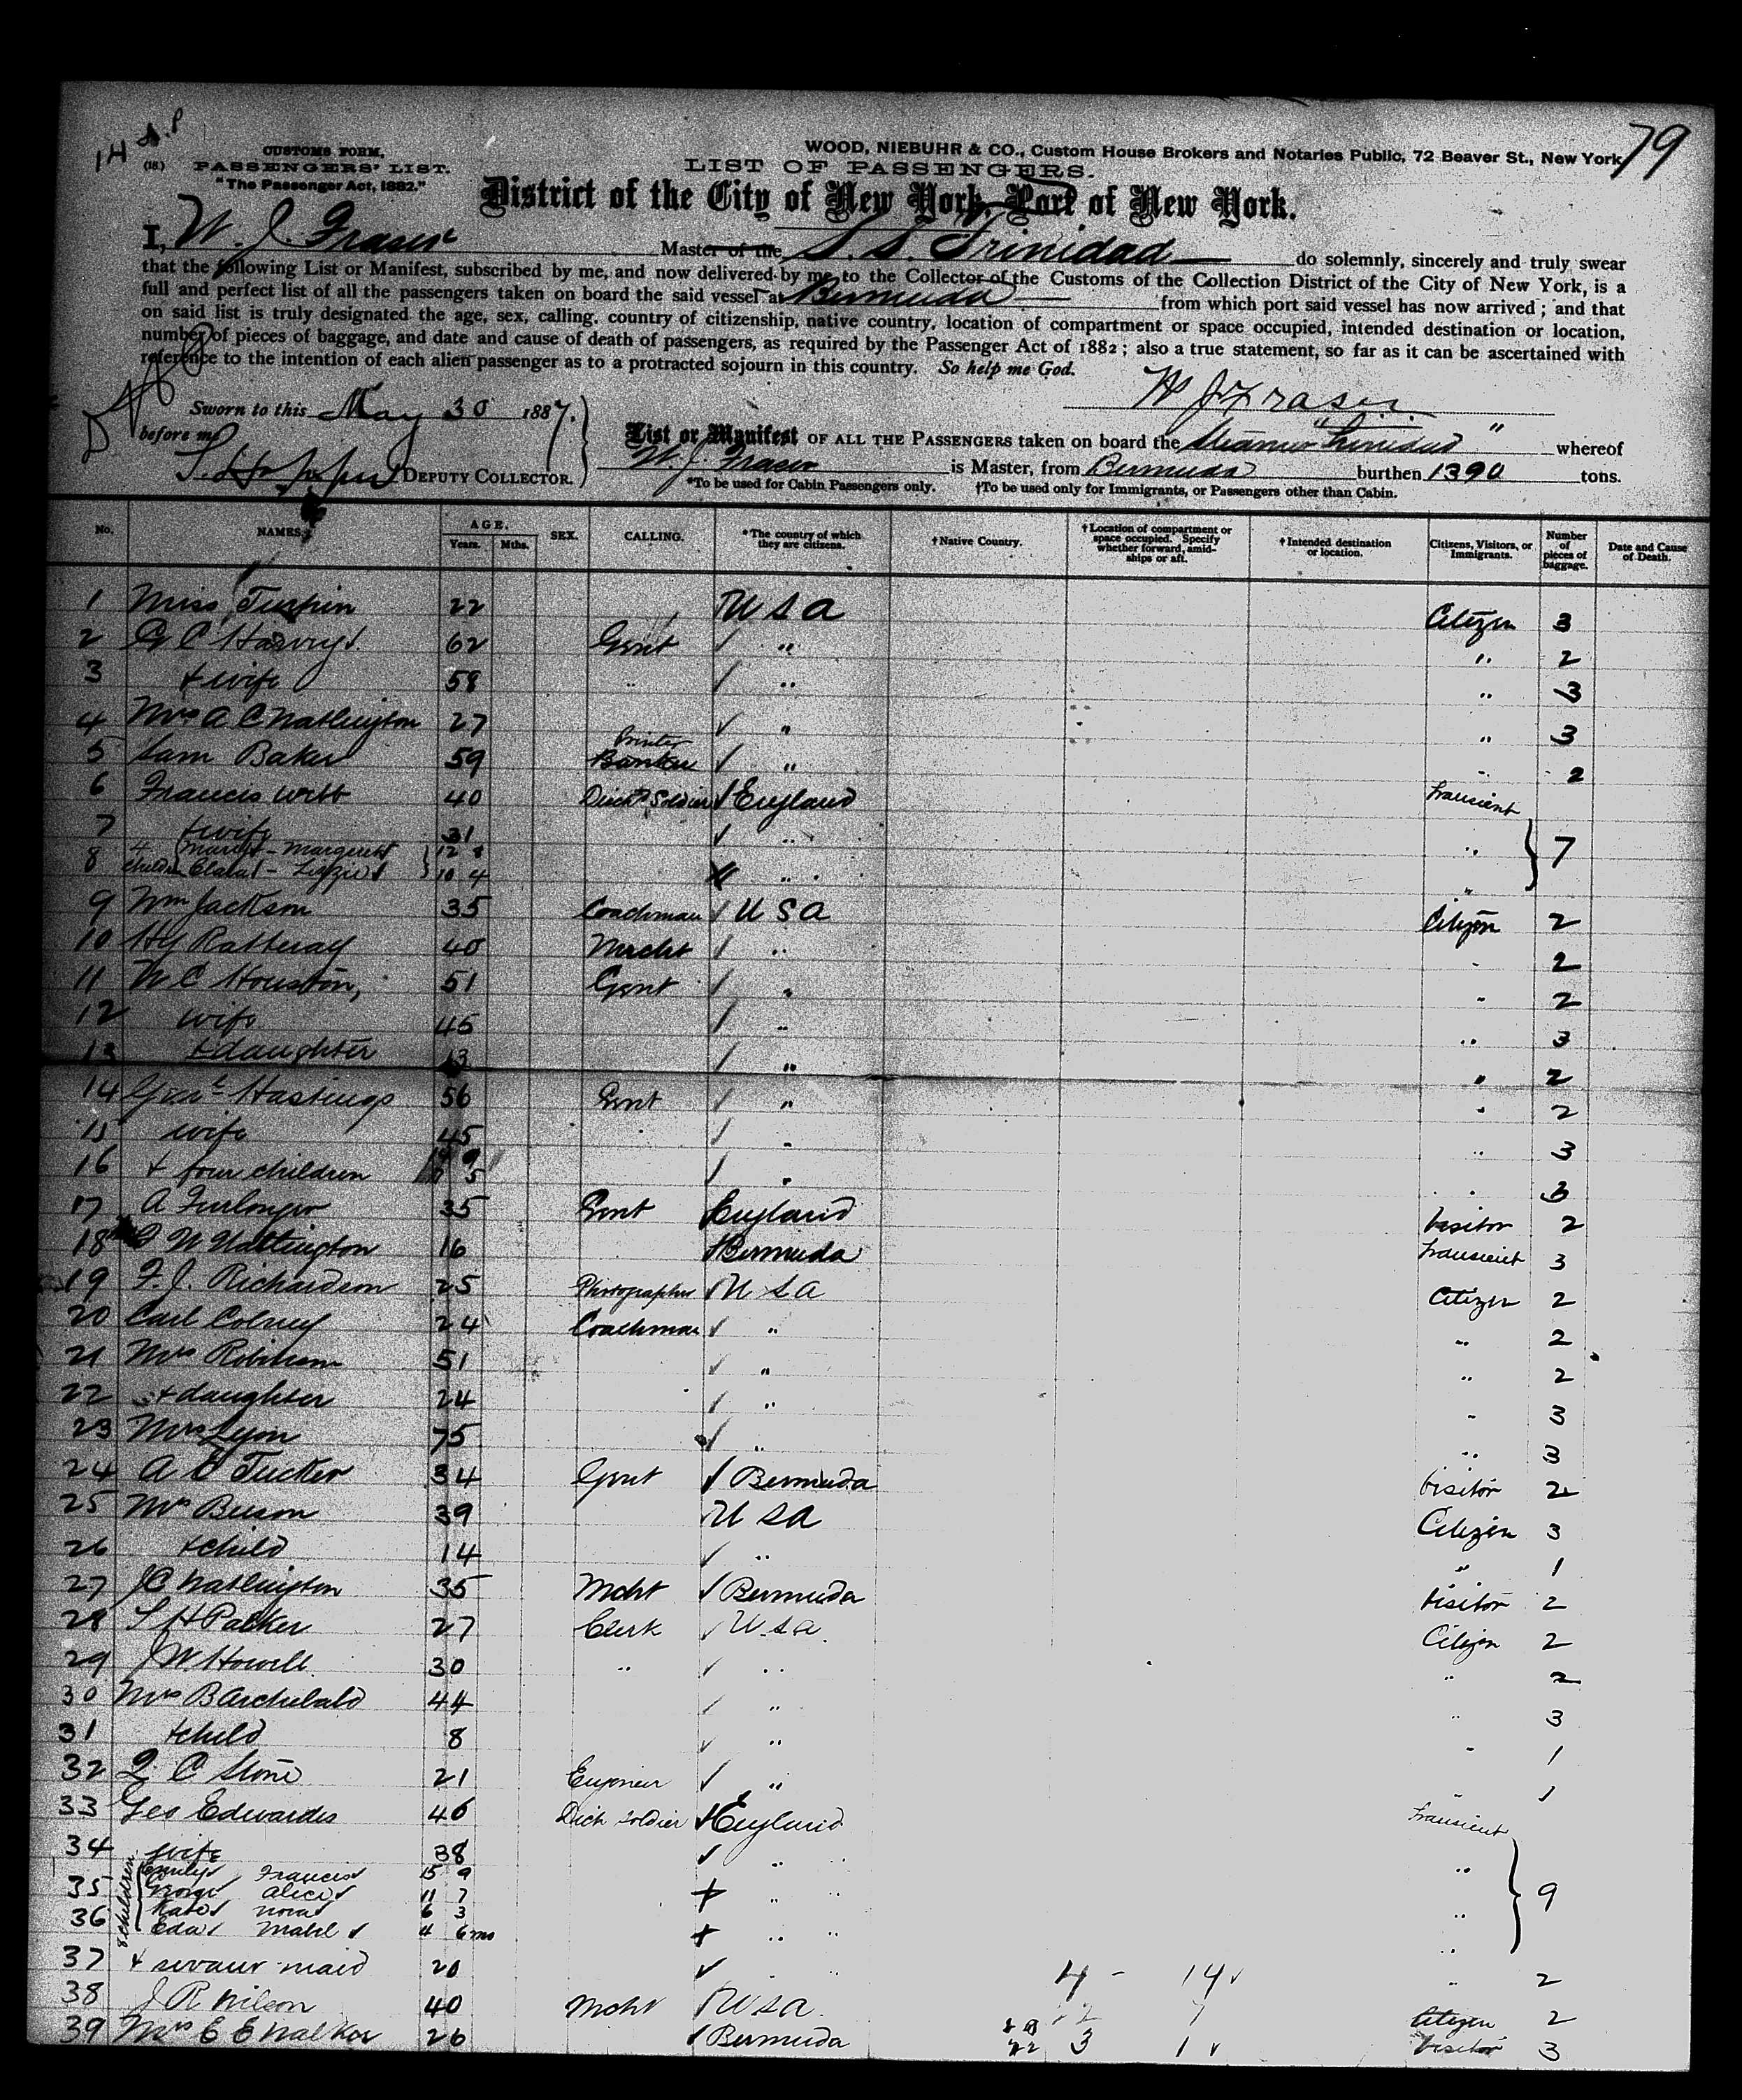 79
CUSTOMS FORM.
(18.) PASSENGERS' LIST.
"The Passenger Act, 1882."
WOOD, NIEBUHR & CO., Custom House Brokers and Notaries Public, 72 Beaver St., New York
LIST OF PASSENGERS.
District of the City of New York, Port of New York.
I, W. J. Fraser Master of the S. S. Trinidad do solemnly, sincerely and truly swear
that the following List or Manifest, subscribed by me, and now delivered by me to the Collector of the Customs of the Collection District of the City of New York, is a
full and perfect list of all the passengers taken on board the said vessel at Bermuda from which port said vessel has now arrived; and that
on said list is truly designated the age, sex, calling, country of citizenship, native country, location of compartment or space occupied, intended destination or location,
number of pieces of baggage, and date and cause of death of passengers, as required by the Passenger Act of 1882; also a true statement, so far as it can be ascertained with
reference to the intention of each alien passenger as to a protracted sojourn in this country. So help me God.
W J Fraser
Sworn to this May 30 1887.
before me
DEPUTY COLLECTOR.
List or Manifest OF ALL THE PASSENGERS taken on board the Steamer "Trinidad" whereof
W. J. Fraser is Master, from Bermuda burthen 1390 tons.
*To be used for Cabin Passengers only. †To be used only for Immigrants, or Passengers other than Cabin.
No. NAMES. AGE. Years. Mths. SEX. CALLING. *The country of which they are citizens. †Native Country. †Location of compartment or space occupied. Specify whether forward, amidships or aft. †Intended destination or location. Citizens, Visitors, or Immigrants. Number of pieces of baggage. Date and Cause of Death.
1 Miss Turpin 22 U S A Citizen 3
2 G C Harvey 62 Gent " " 2
3 + wife 58 " " " 3
4 Mrs A C Nathington 27 " " 3
5 Sam Baker 59 Printer Banker " " 2
6 Francis Witt 40 Disch Soldier England Transient
7 + wife 31 " " 7
8 4 children Margaret 12 8
Clara - Lizzie 10 4 " "
9 Wm Jackson 35 Coachman U S A Citizen 2
10 Hy Rattray 40 Mercht " " 2
11 W C Houston, 51 Gent " " 2
12 wife 45 " " 3
13 + daughter 13 " " 2
14 Genl Hastings 56 Gent " " 2
15 wife 45 " " 3
16 + four children 9 5 " "
17 A Furlonger 35 Gent England Visitor 2
18 16 Bermuda Transient 3
19 F. J. Richardson 25 Photographer U S A Citizen 2
20 Carl Colney 24 Coachman " " 2
21 Mrs Robinson 51 " " 2
22 + daughter 24 " " 3
23 Mrs Lyon 75 " " 3
24 A Tucker 34 Gent Bermuda Visitor 2
25 Mrs 39 U S A Citizen 3
26 + child 14 " " 1
27 J C Nathington 35 Mcht Bermuda Visitor 2
28 S H Parker 27 Clerk U.S.a. Citizen 2
29 J W. Howell 30 " " " 2
30 Mrs B Archibald 44 " " 3
31 + child 8 " " 1
32 C Stone 21 Engineer " " 1
33 Geo Edwardes 46 Disch Soldier England Transient
34 wife 38 " " 9
8 children
Emily Francis 15 9
35 George Alice 11 7 " "
Kate Nora 6 3
36 Eda Mabel 4 6 mo " "
37 + servant maid 20 " " 2
4 - 14
38 J R Wilson 40 Mcht U S a. Citizen 2
39 Mrs E E Walker 26 Bermuda Visitor 3
3 1